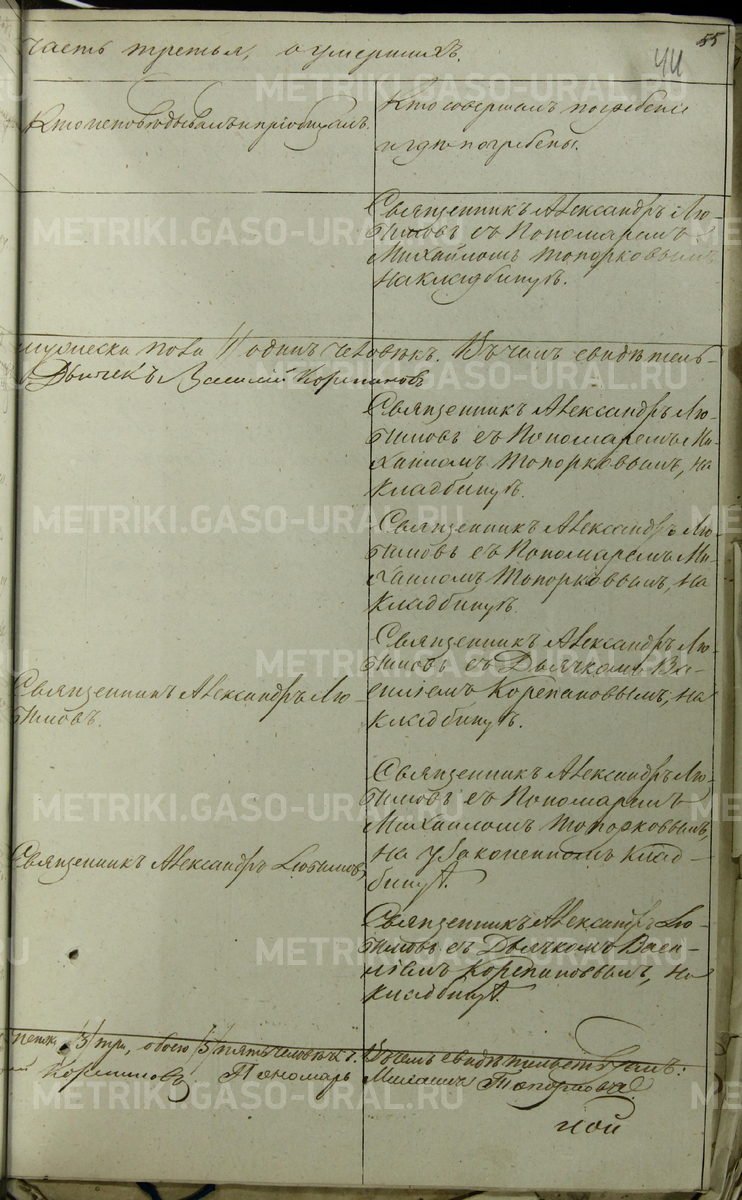 55
44
часть третья, о умершихъ.
Кто исповѣдывалъ и пріобщалъ.
Кто совершалъ погребеніе
и гдѣ погребены.
Священникъ Александръ Лю-
бимовъ съ Пономаремъ
Михаиломъ Топорковымъ
на кладбищѣ.
мужеска пола 1/ одинъ человѣкъ. Въ чемъ свидѣтель-
Дьячекъ Василій Корепановъ
Священникъ Александръ Лю-
бимовъ съ Пономаремъ Ми-
хаиломъ Топорковымъ, на
кладбищѣ.
Священникъ Александръ Лю-
бимовъ съ Пономаремъ Ми-
хаиломъ Топорковымъ, на
кладбищѣ.
Священникъ Александръ Лю-
бимовъ.
Священникъ Александръ Лю-
бимовъ съ Дьячкомъ Ва-
силіемъ Корепановымъ, на
кладбищѣ.
Священникъ Александръ Любимовъ,
Священникъ Александръ Лю-
бимовъ съ Пономаремъ
Михаиломъ Топорковымъ,
на узаконенномъ клад-
бищѣ.
Священникъ Александръ Лю-
бимовъ съ Дьячкомъ Васи-
ліемъ Корепановымъ, на
кладбищѣ.
/3/ три, обоего /5/ пять человѣкъ. Въ чемъ свидѣтельствуемъ:
Корепановъ Пономарь Михаилъ Топорковъ
ной
METRIKI.GASO-URAL.RU